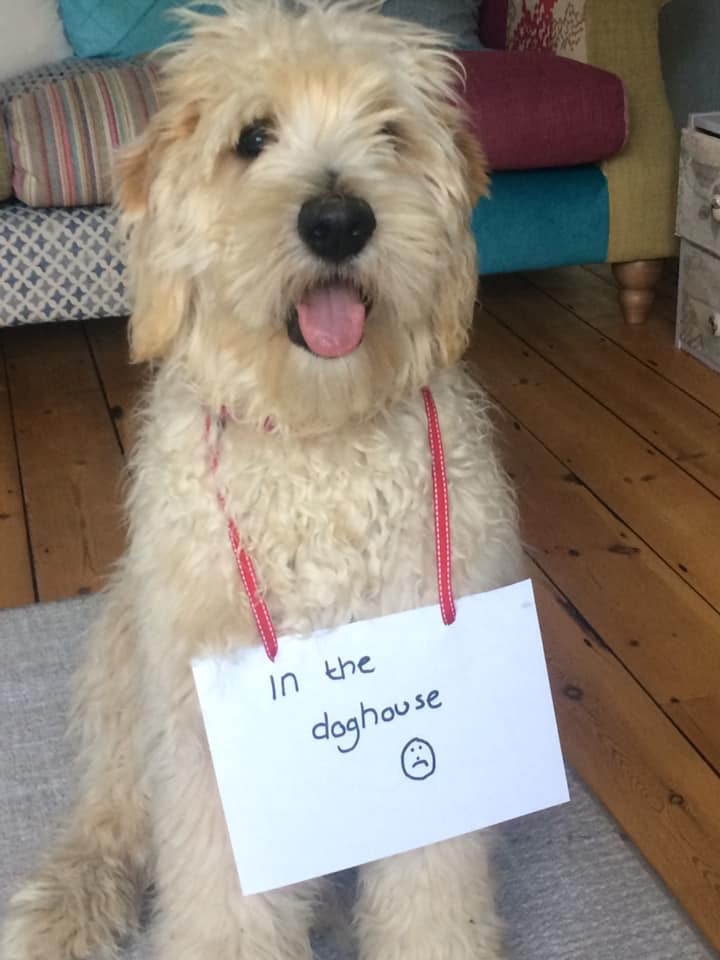 in the
doghouse